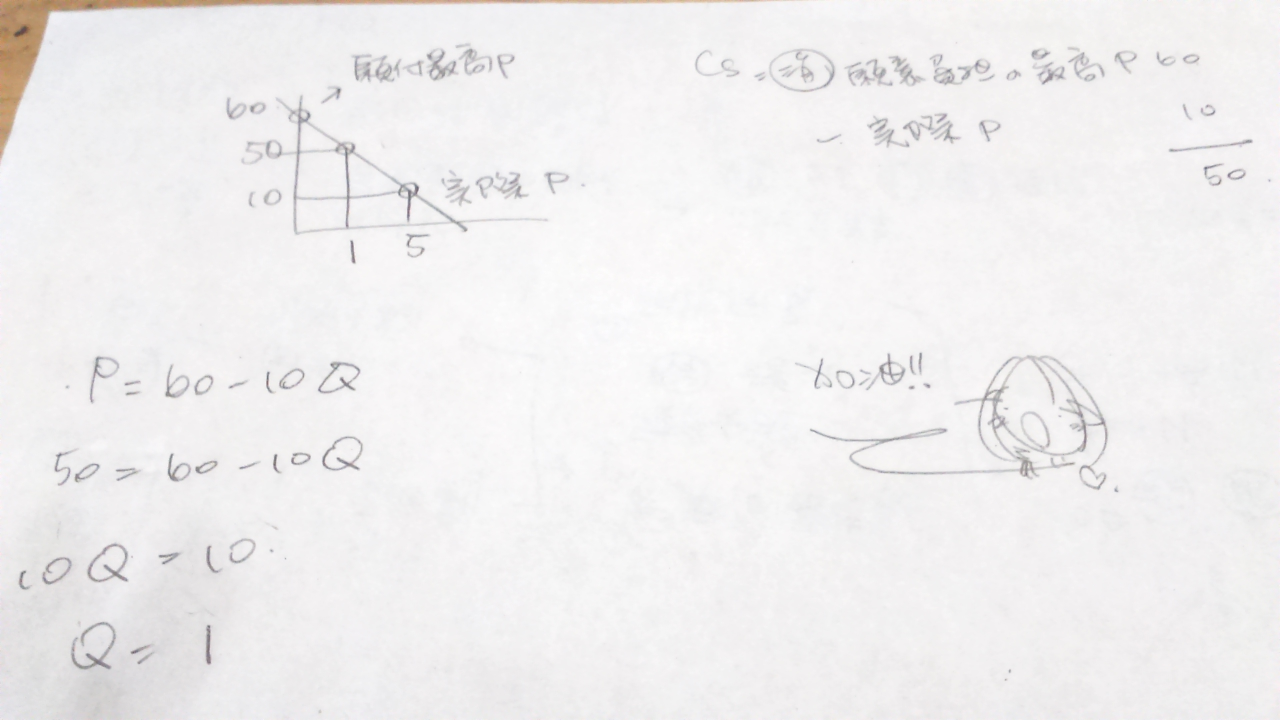 願付最高P
60
50
10
實際 P.
1 5
CS = 消 願意負担の最高 P 60
- 實際 P 10
50
P = 60 - 10Q
50 = 60 - 10Q
10Q = 10
Q = 1
加油!!